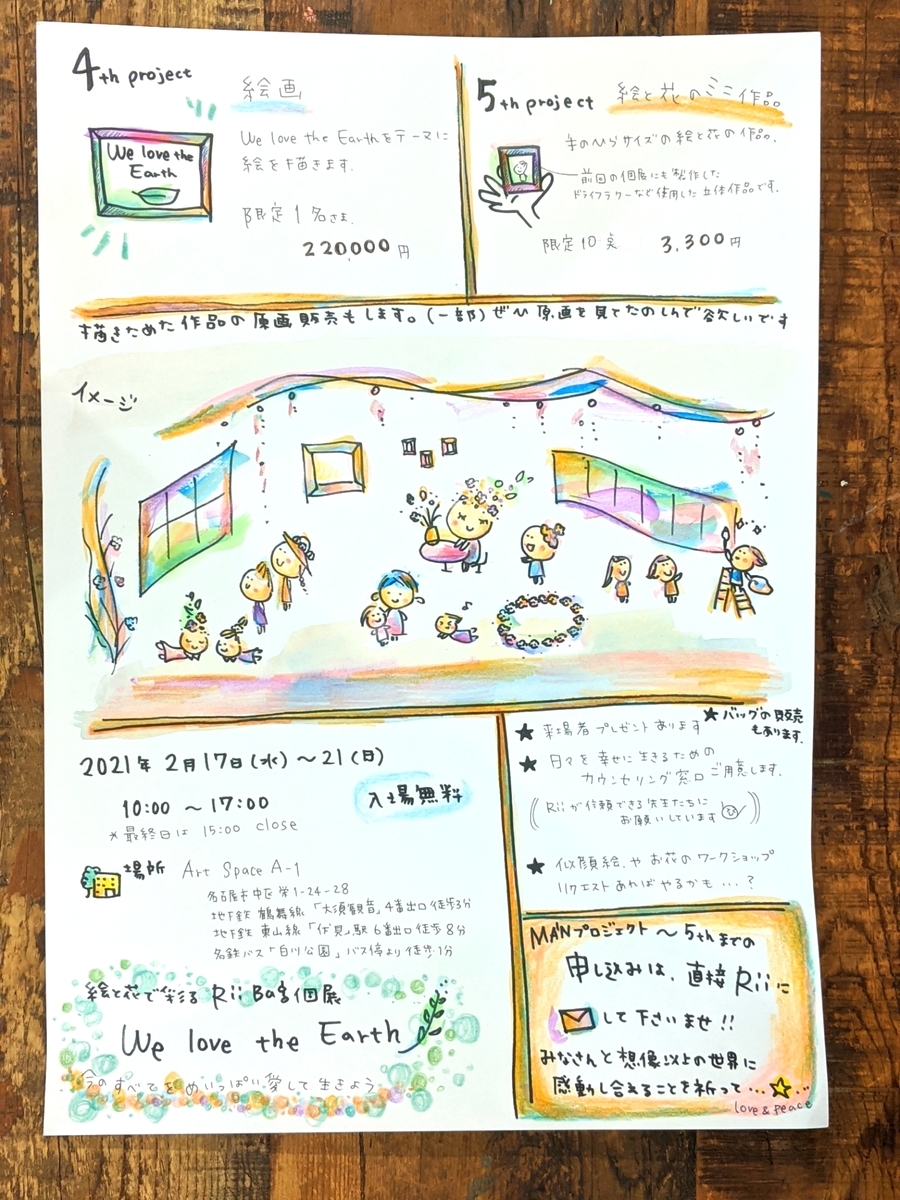 4th project
絵画
We love the
Earth
We love the Earthをテーマに
絵を描きます.
限定1名さま.
220,000円
5th project
絵と花のミニ作品
手のひらサイズの絵と花の作品.
前回の個展にも製作した
ドライフラワーなど使用した立体作品です.
限定10点 3,300円
描きためた作品の原画販売もします。(一部)ぜひ原画を見てたのしんで欲しいです
イメージ
2021年2月17日(水)〜21(日)
10:00 〜17:00
*最終日は 15:00 close
入場無料
場所 Art Space A-1
名古屋市中区栄1-24-28
地下鉄 鶴舞線「大須観音」4番出口徒歩3分
地下鉄 東山線「伏見」駅6番出口徒歩8分
名鉄バス「白川公園」バス停より徒歩1分
絵と花で彩る Rii 個展
We love the Earth
今のすべてをめいっぱい愛して生きよう
★来場者プレゼントあります
★バッグの販売
もあります.
★日々を幸せに生きるための
カウンセリング窓口ご用意します.
((Riiが信頼できる先生たちに
お願いしています))
★似顔絵.やお花のワークショップ
リクエストあればやるかも…?
MANプロジェクト〜5thまでの
申し込みは、直接Riiに
して下さいませ!!
みなさんと想像以上の世界に
感動し合えることを祈って…☆..
love & peace